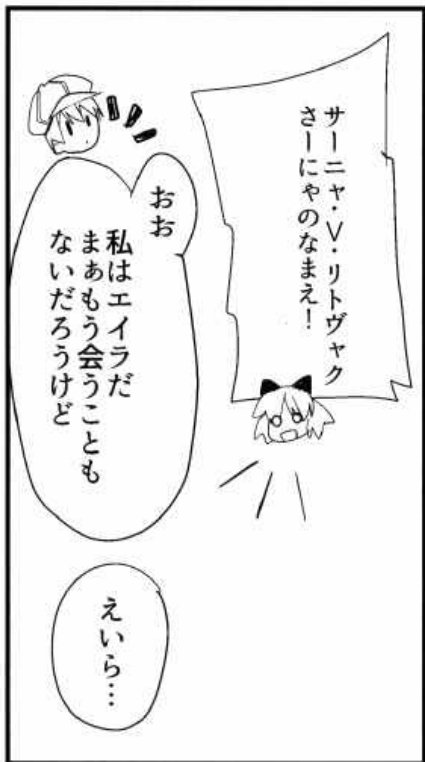 サーニャ・V・リトヴャク
さーにゃのなまえ！
おお
私はエイラだ
まぁもう会うことも
ないだろうけど
えいら…